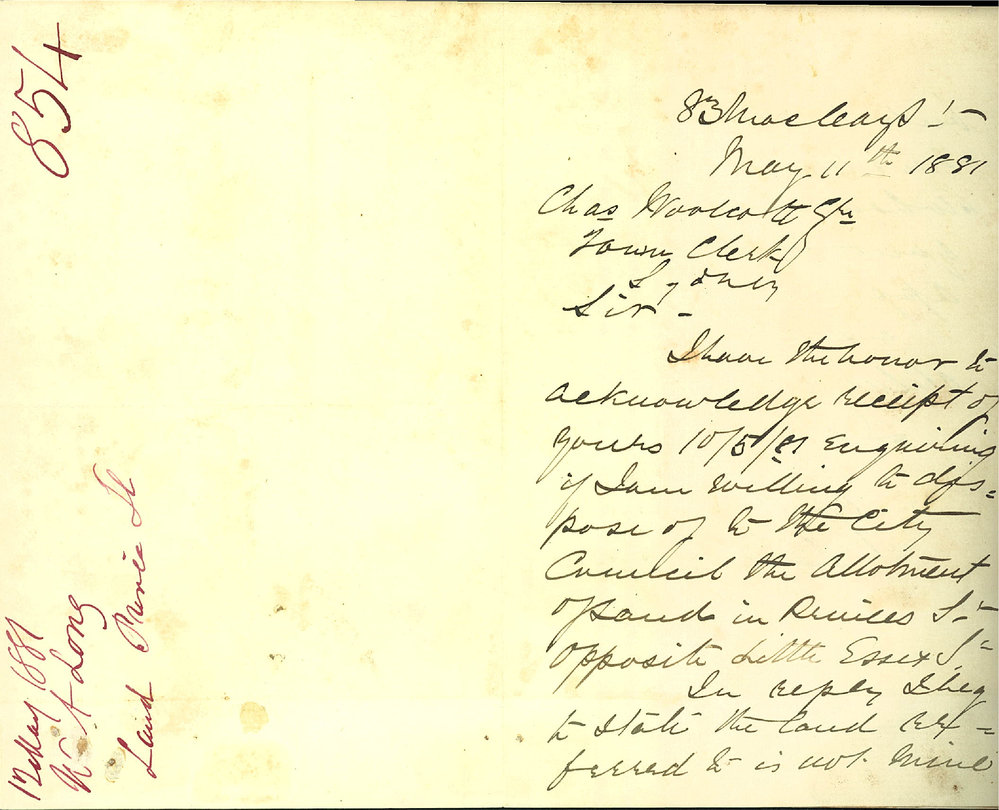 854
12 May 1881
W A Long
Land Princes St
83 Macleay St
May 11th 1881
Chas Woolcott Esqre
Town Clerk
Sydney
Sir -
I have the honor to
acknowledge receipt of
yours 10/5/81 enquiring
if I am willing to dis=
pose of to the City
Council the Allotment
of land in Princes St
opposite Little Essex St
In reply I beg
to state the land re=
ferred to is not mine